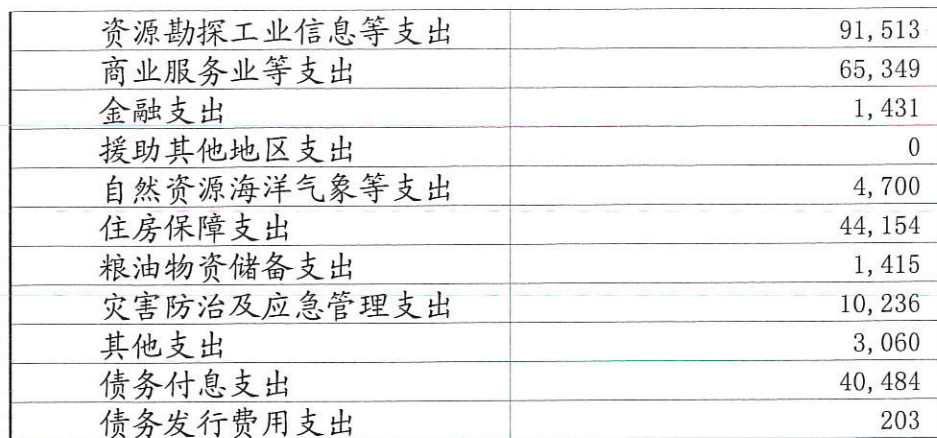 资源勘探工业信息等支出 91,513
商业服务业等支出 65,349
金融支出 1,431
援助其他地区支出 0
自然资源海洋气象等支出 4,700
住房保障支出 44,154
粮油物资储备支出 1,415
灾害防治及应急管理支出 10,236
其他支出 3,060
债务付息支出 40,484
债务发行费用支出 203